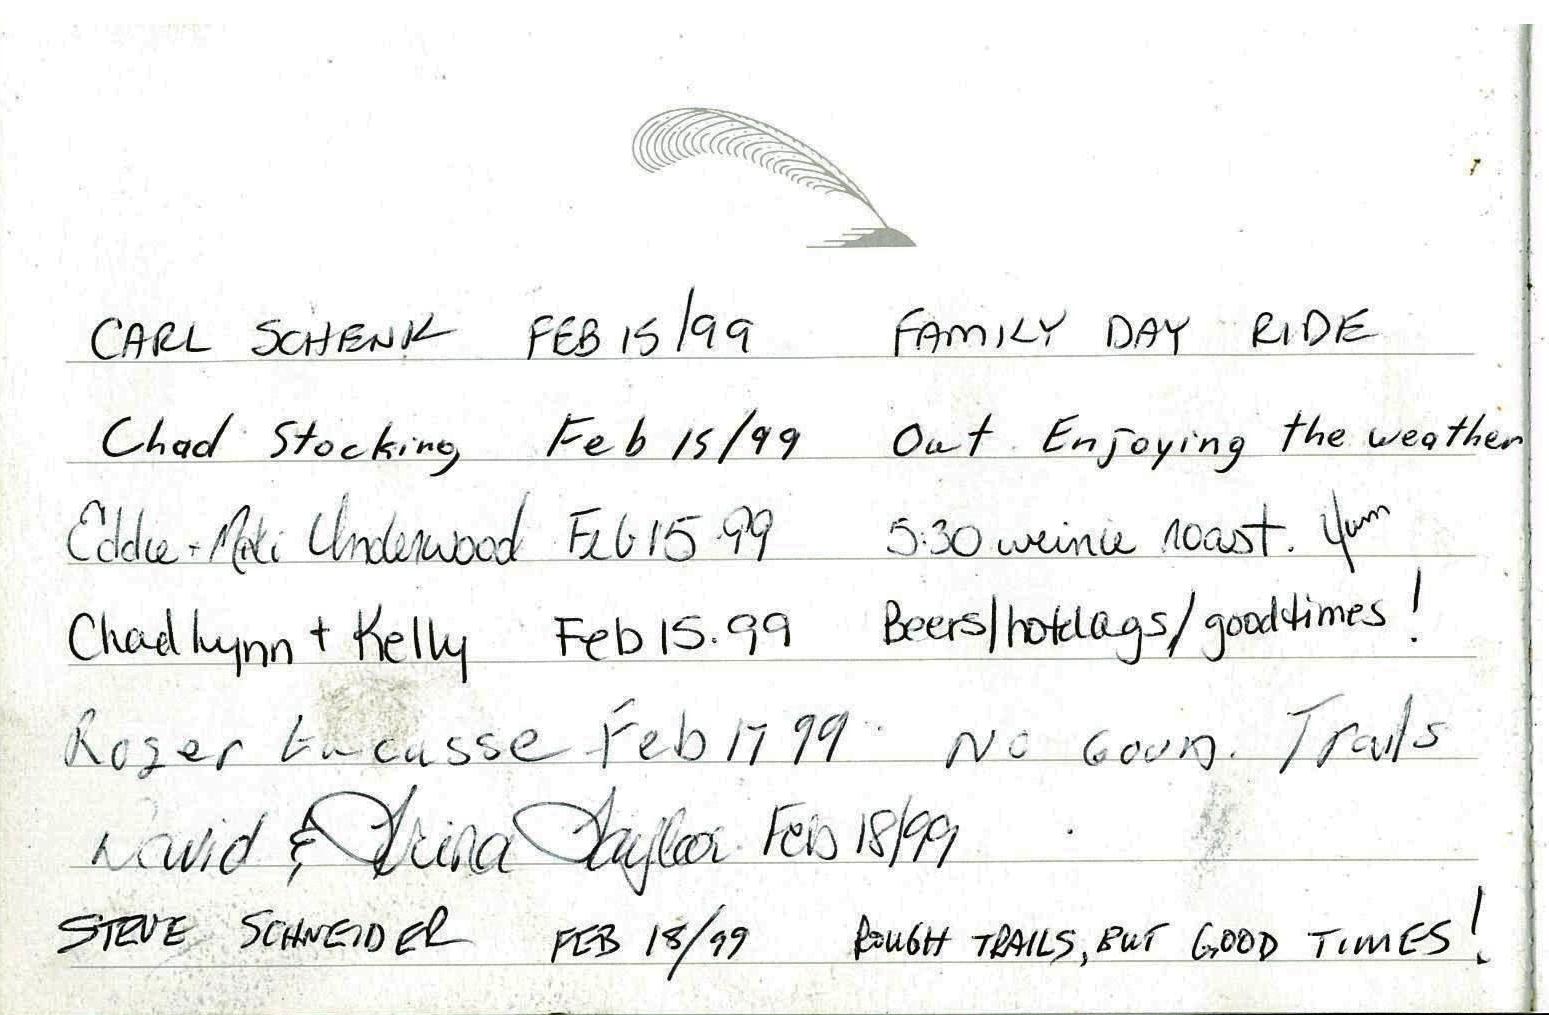 CARL SCHENK FEB 15/99 FAMILY DAY RIDE
Chad Stocking Feb 15/99 Out Enjoying the weather
Eddie + Underwood Feb 15.99 5:30 weinie roast. Yum
Chad lynn + Kelly Feb 15.99 Beers/hotdogs/goodtimes!
Roger Lacasse Feb 17 99 No Trails
David & Trina Taylor Feb 18/99
STEVE SCHNEIDER FEB 18/99 ROUGH TRAILS, BUT GOOD TIMES!